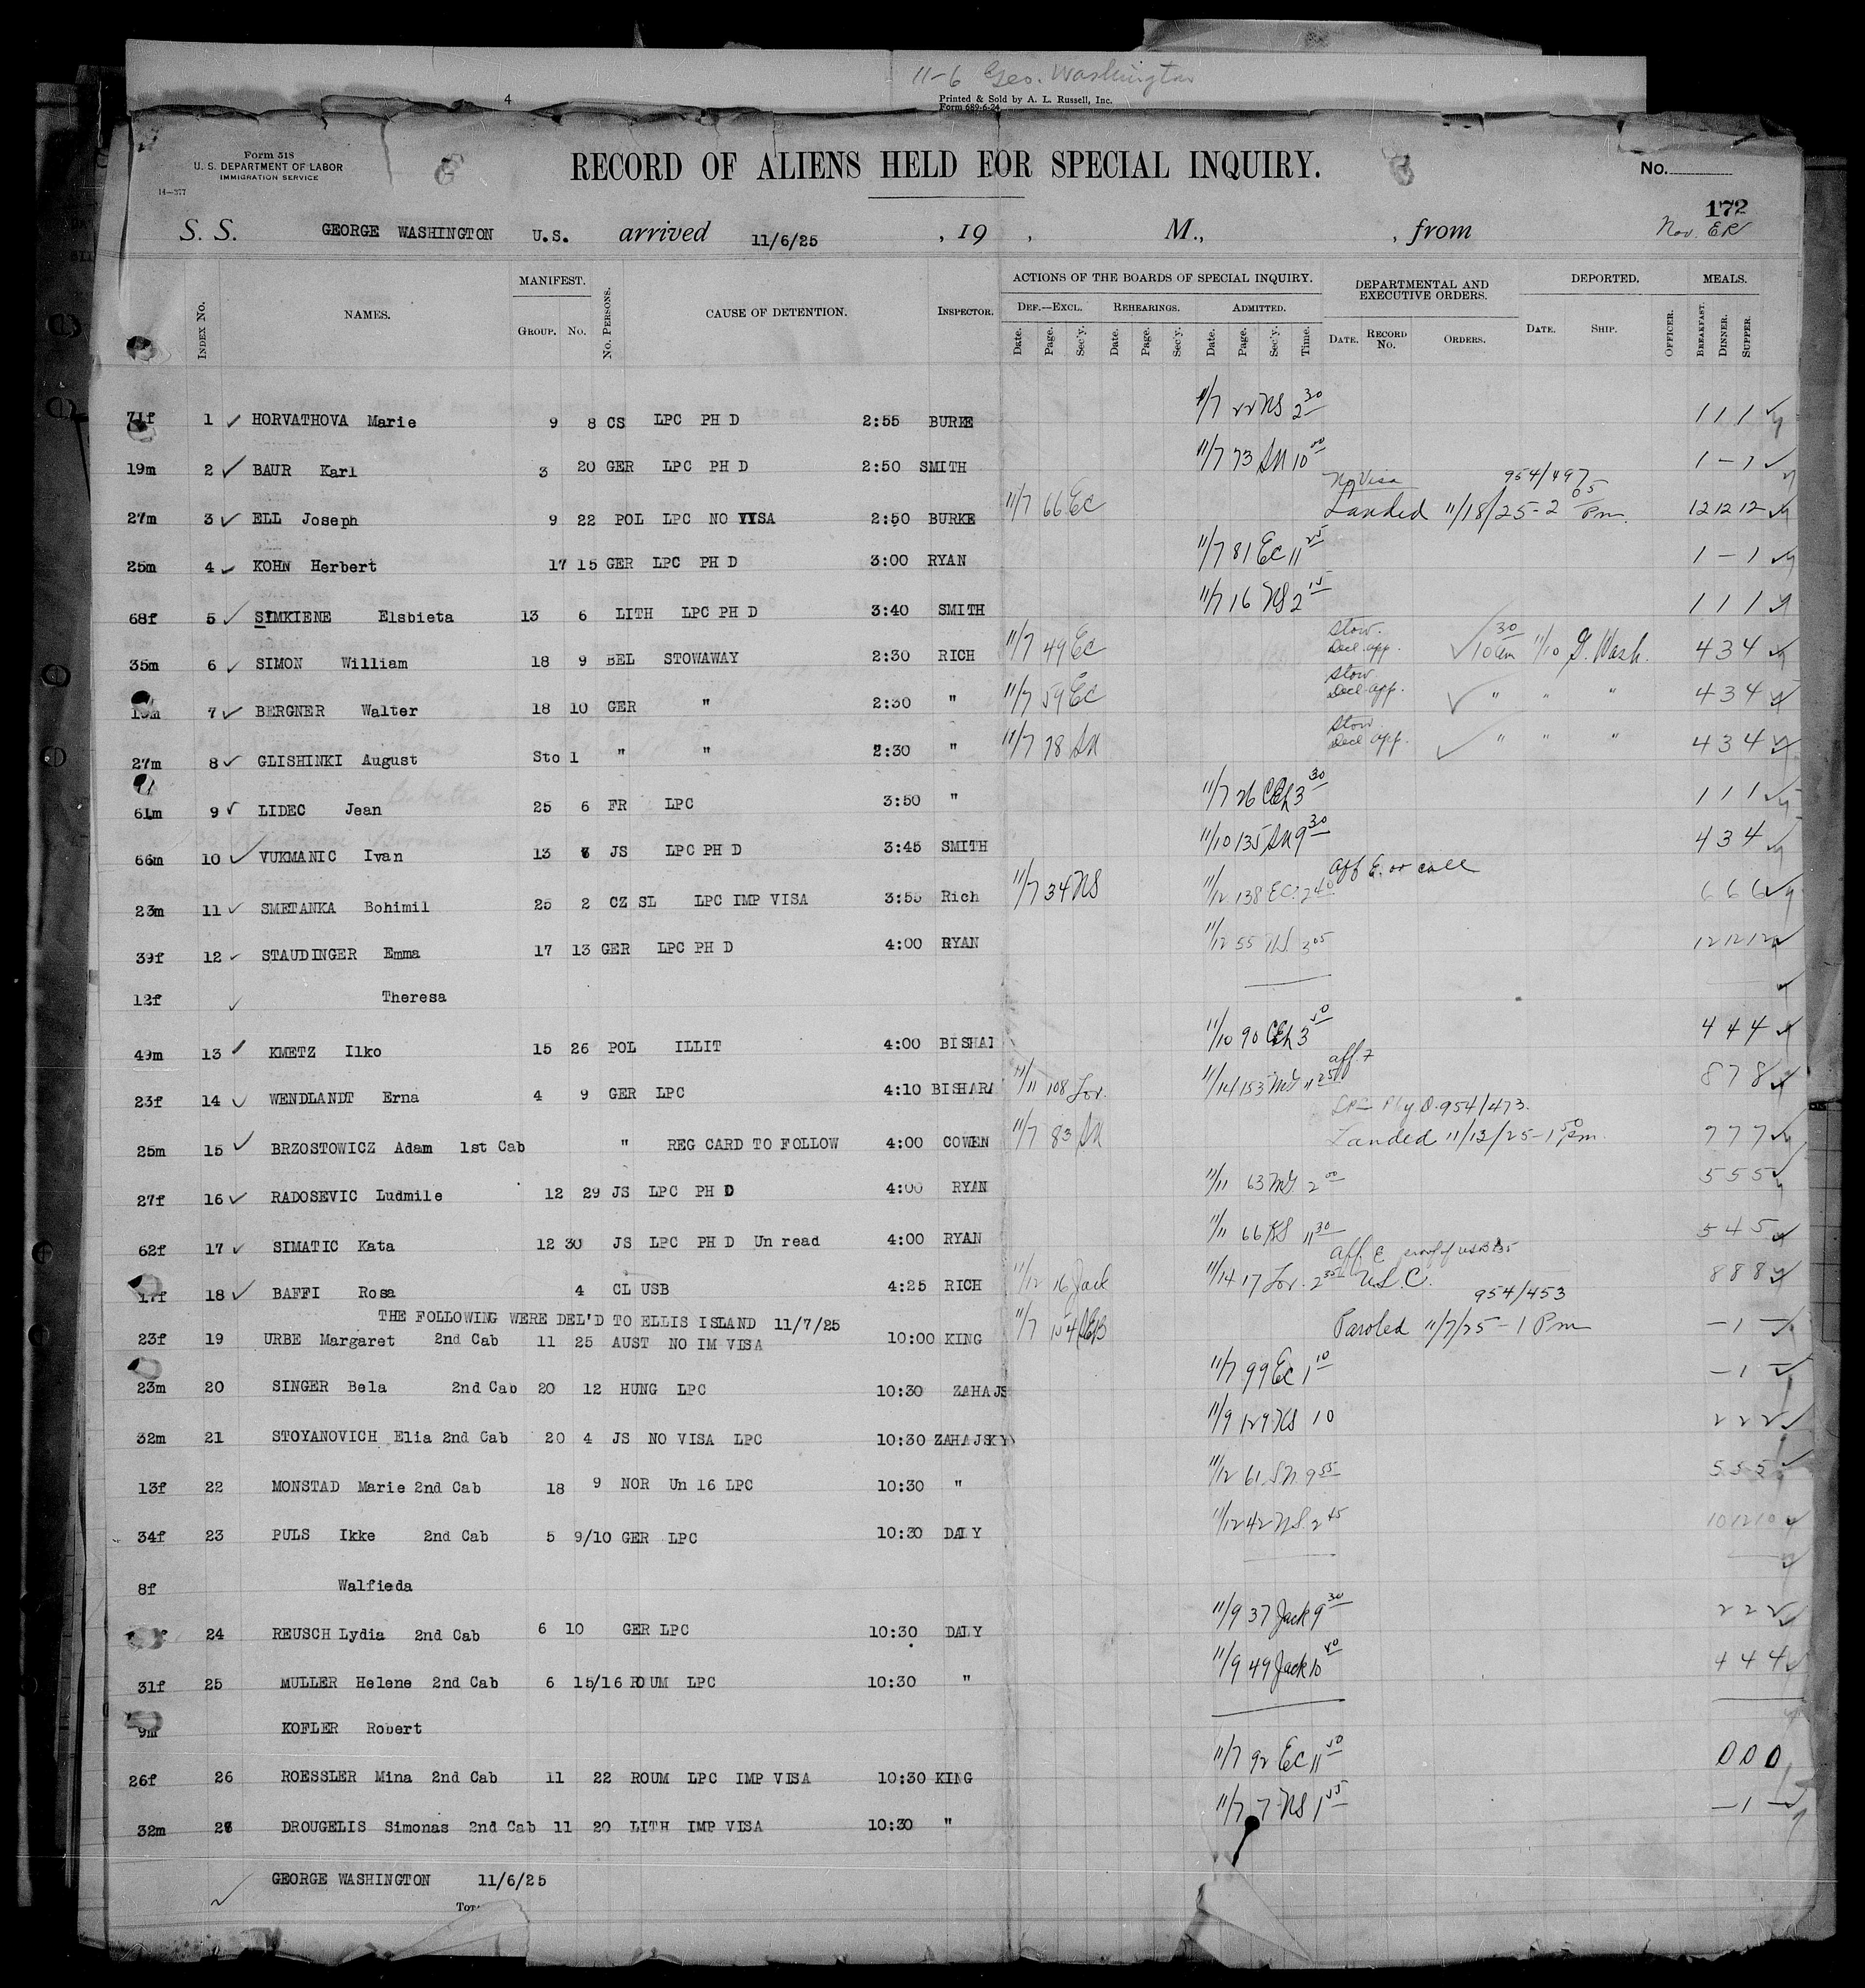 11-6 Geo. Washington
4
Printed & Sold by A. L. Russell, Inc.
Form 689-6-24
Form 518
U. S. DEPARTMENT OF LABOR
IMMIGRATION SERVICE
14—377
RECORD OF ALIENS HELD FOR SPECIAL INQUIRY.
No.
172
S. S. GEORGE WASHINGTON U.S. arrived 11/6/25 , 19 , M., , from Nov. ER
MANIFEST. ACTIONS OF THE BOARDS OF SPECIAL INQUIRY. DEPARTMENTAL AND EXECUTIVE ORDERS. DEPORTED. MEALS.
Index No. NAMES. Group. No. No. Persons. CAUSE OF DETENTION. Inspector. Def.—Excl. Rehearings. Admitted.
Date. Page. Sec'y. Date. Page. Sec'y. Date. Page. Sec'y. Time. Date. Record No. Orders. Date. Ship. Officer. Breakfast. Dinner. Supper.
71f 1 ✓ HORVATHOVA Marie 9 8 CS LPC PH D 2:55 BURKE 11/7 22 NS 2 30 1 1 1
19m 2 ✓ BAUR Karl 3 20 GER LPC PH D 2:50 SMITH 11/7 73 SN 10 00 1 – 1
No Visa 954/497
27m 3 ✓ ELL Joseph 9 22 POL LPC NO VISA 2:50 BURKE 11/7 66 EC Landed 11/18/25 - 2 05 Pm. 12 12 12
25m 4 ✓ KOHN Herbert 17 15 GER LPC PH D 3:00 RYAN 11/7 81 EC 11 25 1 – 1
68f 5 ✓ SIMKIENE Elsbieta 13 6 LITH LPC PH D 3:40 SMITH 11/7 16 NS 2 15 1 1 1
35m 6 ✓ SIMON William 18 9 BEL STOWAWAY 2:30 RICH 11/7 49 EC Stow. Decl. app. ✓ 10 30 am 11/10 G. Wash. 4 3 4
7 ✓ BERGNER Walter 18 10 GER " 2:30 " 11/7 59 EC Stow Decl. app. ✓ " " " 4 3 4
27m 8 ✓ GLISHINKI August Sto 1 " " 2:30 " 11/7 78 SN Stow. Decl app. ✓ " " " 4 3 4
61m 9 ✓ LIDEC Jean 25 6 FR LPC 3:50 " 11/7 26 CEh 3 30 1 1 1
66m 10 ✓ VUKMANIC Ivan 13 JS LPC PH D 3:45 SMITH 11/10 135 SN 9 30 4 3 4
23m 11 ✓ SMETANKA Bohimil 25 2 CZ SL LPC IMP VISA 3:55 Rich 11/7 34 NS 11/12 138 EC. 2 40 aff E. or call 6 6 6
39f 12 ✓ STAUDINGER Emma 17 13 GER LPC PH D 4:00 RYAN 11/12 55 N.S. 3 05 12 12 12
12f ✓ Theresa
49m 13 ✓ KMETZ Ilko 15 26 POL ILLIT 4:00 BISHAI 11/10 90 CEh 3 50 4 4 4
23f 14 ✓ WENDLANDT Erna 4 9 GER LPC 4:10 BISHARA 11/11 108 Lor. 11/14 153 MG 11 25 aff. 8 7 8
LPC Phy D. 954/473.
25m 15 ✓ BRZOSTOWICZ Adam 1st Cab " REG CARD TO FOLLOW 4:00 COWEN 11/7 83 SN Landed 11/13/25 - 1 50 pm. 7 7 7
27f 16 ✓ RADOSEVIC Ludmile 12 29 JS LPC PH D 4:00 RYAN 11/11 63 MG. 2 00 5 5 5
62f 17 ✓ SIMATIC Kata 12 30 JS LPC PH D Un read 4:00 RYAN 11/11 66 NS 11 30 5 4 5
17f 18 ✓ BAFFI Rosa 4 CL USB 4:25 RICH 11/12 16 Jack 11/14 17 Lor. 2 35 aff. E U.S.C. 8 8 8
THE FOLLOWING WERE DEL'D TO ELLIS ISLAND 11/7/25 954/453
23f 19 URBE Margaret 2nd Cab 11 25 AUST NO IM VISA 10:00 KING 11/7 Paroled 11/7/25 - 1 Pm – 1 –
23m 20 SINGER Bela 2nd Cab 20 12 HUNG LPC 10:30 ZAHAJS 11/7 99 EC 1 10 – 1 –
32m 21 STOYANOVICH Elia 2nd Cab 20 4 JS NO VISA LPC 10:30 ZAHAJSKY 11/9 129 NS 10 2 2 2
13f 22 MONSTAD Marie 2nd Cab 18 9 NOR Un 16 LPC 10:30 " 11/12 61 SN. 9 55 5 5 5
34f 23 PULS Ikke 2nd Cab 5 9/10 GER LPC 10:30 DALY 11/12 42 N.S. 2 45 10 12 10
8f Walfieda
24 REUSCH Lydia 2nd Cab 6 10 GER LPC 10:30 DALY 11/9 37 Jack 9 30 2 2 2
31f 25 MULLER Helene 2nd Cab 6 15/16 ROUM LPC 10:30 " 11/9 49 Jack 10 4 4 4
9m KOFLER Robert
26f 26 ROESSLER Mina 2nd Cab 11 22 ROUM LPC IMP VISA 10:30 KING 11/7 92 EC 11 50 0 0 0
32m 27 DROUGELIS Simonas 2nd Cab 11 20 LITH IMP VISA 10:30 " 11/7 7 NS 1 55 – 1 –
✓ GEORGE WASHINGTON 11/6/25